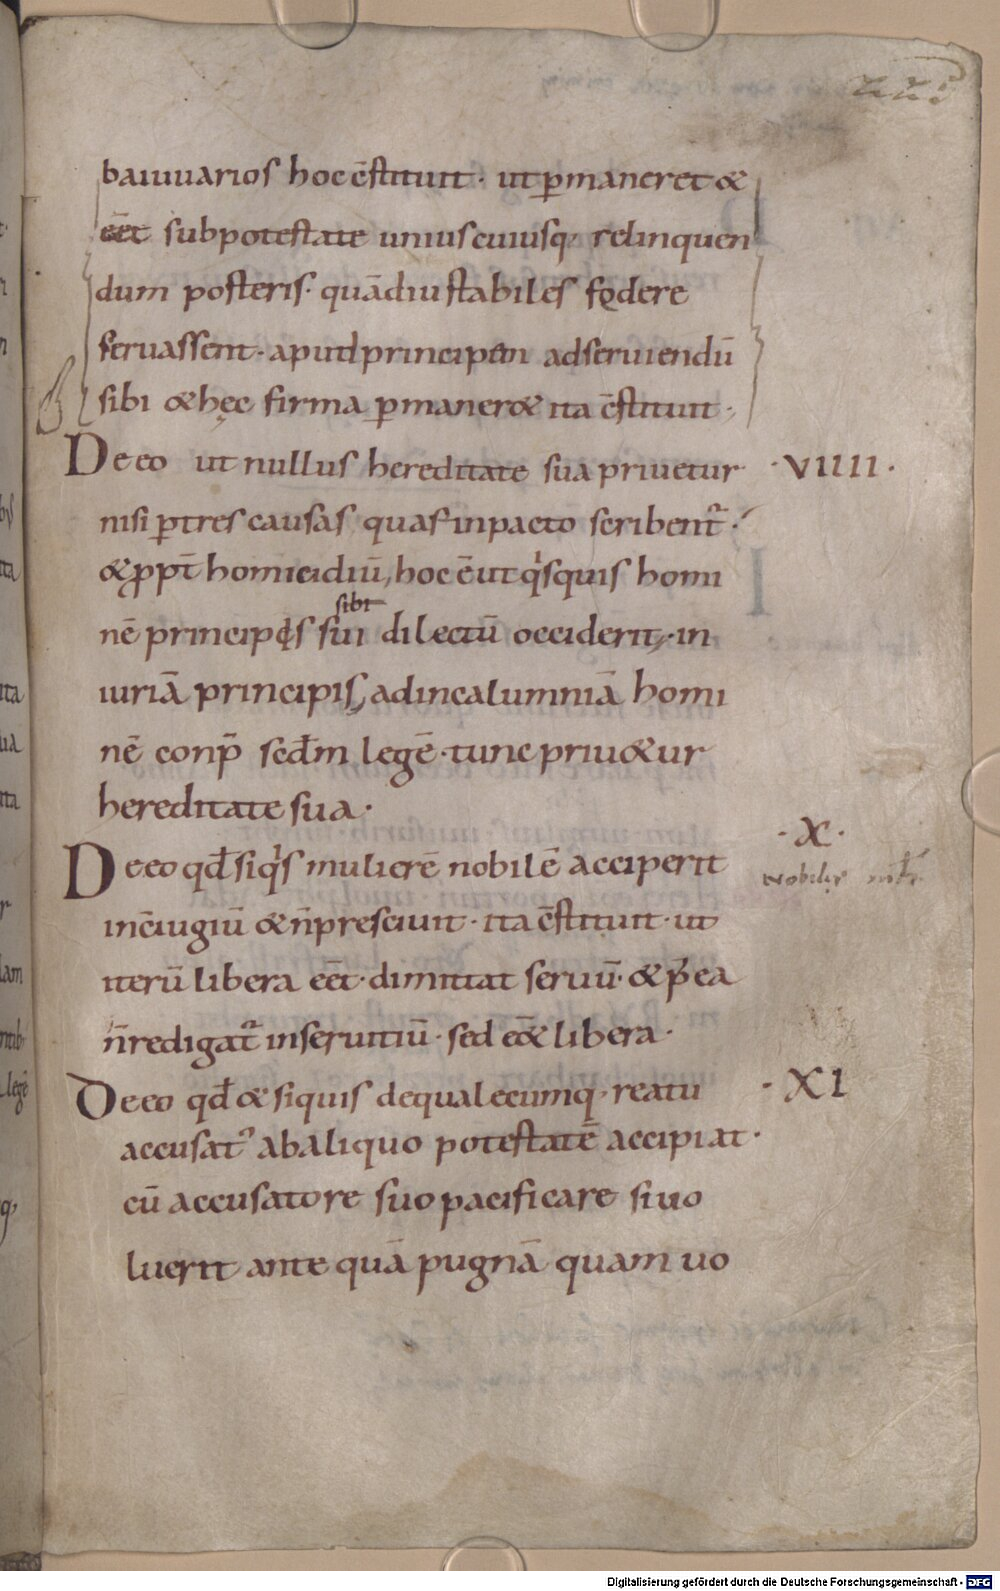 baiuuarios hoc c̄stituit · ut ꝑmaneret &
eēt sub potestate uniuscuiusq; relinquen
dum posteris · quādiu stabiles fędere
seruassent · apud principem ad seruiendū
sibi & hęc firma ꝑmaner& ita c̄stituit ·
De eo ut nullus hereditate sua priuetur · VIIII ·
nisi ꝑ tres causas quas in pacto scribent᷑ ·
& ꝓpt̄ homicidiū, hoc ē ut qͥsquis homi
sibi
nē principis sui dilectū occiderit, · in
iuriā principis, ad incalumniā homi
nē conp̄ secd̄m legē · tunc priu&ur
hereditate sua ·
De eo qd̄ siqͥs mulierē nobilē acciperit · X ·
nobiles
in c̄iugiū & n̄ presciuit · ita c̄stituit · ut
iterū libera eēt · dimittat seruū · & p̄ ea
n̄ redigat᷑ in seruitiū · sed eē& libera ·
De eo qd̄ & siquis de qualecumq; reatu · XI
accusat᷑ ab aliquo potestatē accipiat ·
cū accusatore suo pacificare si uo
luerit ante quā pugnā quam uo
Digitalisierung gefördert durch die Deutsche Forschungsgemeinschaft - DFG